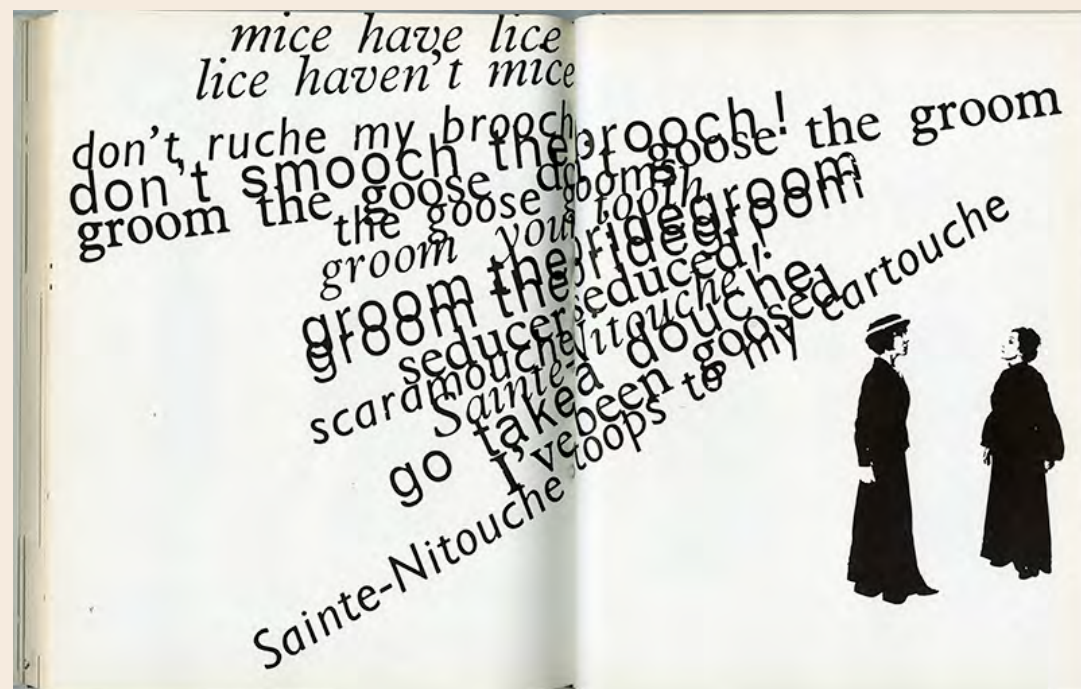 mice have lice
lice haven't mice
don't ruche my brooch
don't smooch the brooch!
groom the goose don't goose the groom
the goose grooms
groom your tooth
groom the bridegroom
groom the bridegroom
seducer seduced!
scaramouche
Sainte-Nitouche
go take a douche
I've been goosed
Sainte-Nitouche toops to my cartouche